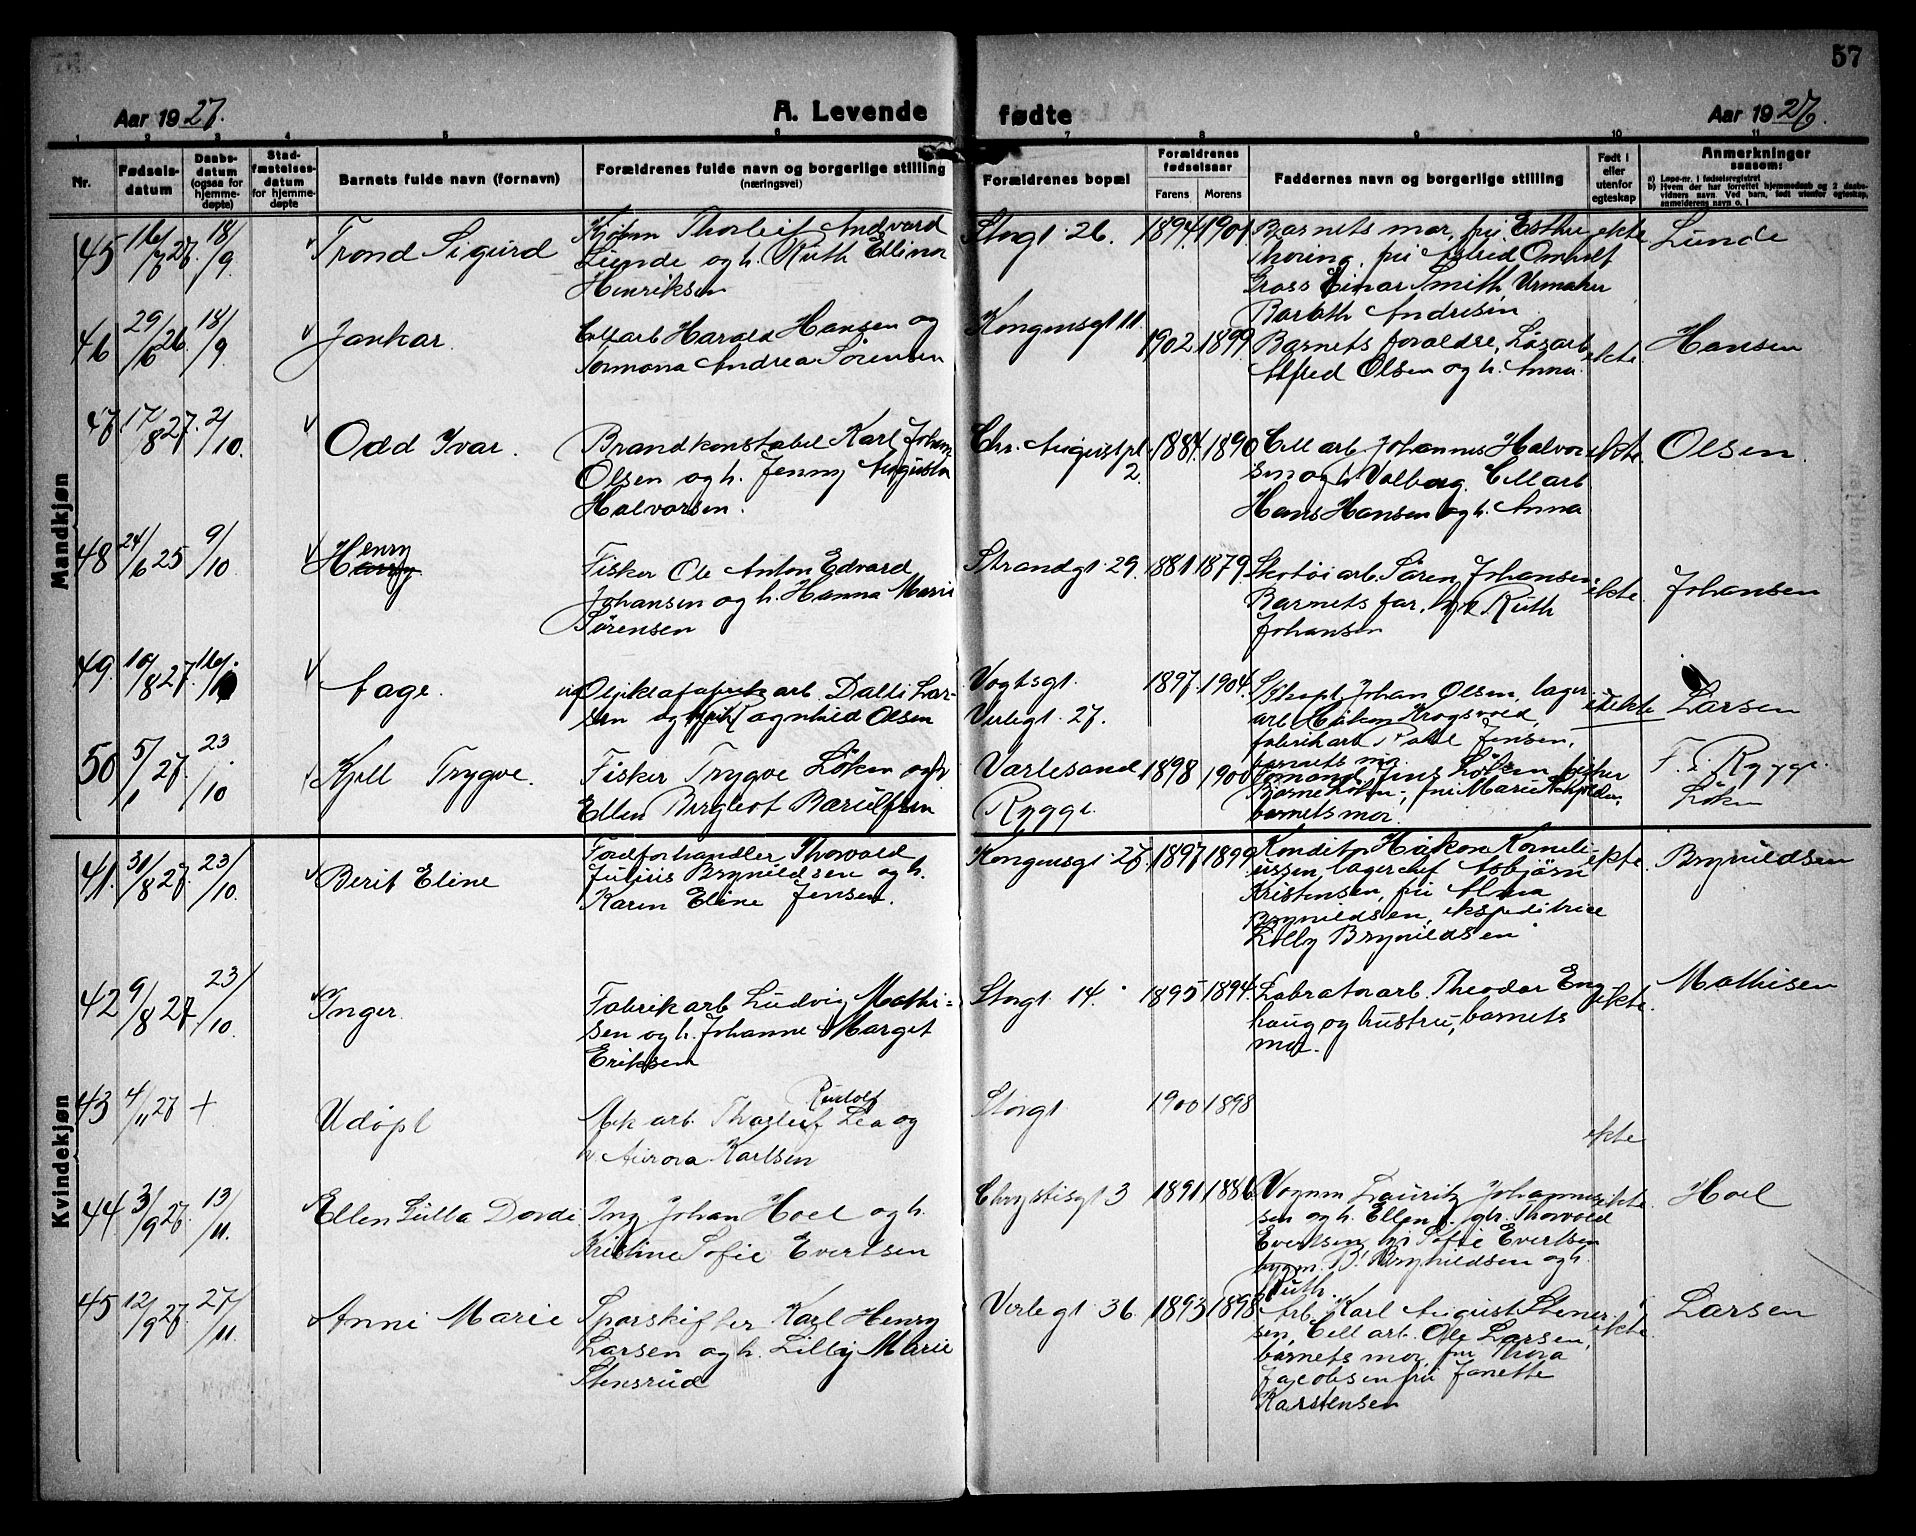 57
Aar 1927.
A. Levende fødte
Aar 1927.
1 2 3 4 5 6 7 8 9 10 11
Nr.
Fødsels-datum
Daabs-datum (ogsaa for hjemme-døpte)
Stad-fæstelses-datum for hjemme-døpte
Barnets fulde navn (fornavn)
Forældrenes fulde navn og borgerlige stilling (næringsvei)
Forældrenes bopæl
Forældrenes fødselsaar
Farens
Morens
Faddernes navn og borgerlige stilling
Født i eller utenfor egteskap
Anmerkninger saasom:
a) Løpe-nr. i fødselsregistret
b) Hvem der har forrettet hjemmedaab og 2 daabs-vidners navn. Ved barn, født utenfor egteskap, anmelderens navn o. l
Mandkjøn
45 16/8 27. 18/9
Trond Sigurd
Thorleif Andvard
Lunde og h. Ruth Ellinor
Henriksen
Storgt. 26. 1894. 1901
Barnets mor, fru Esther
Thoring, fru Astrid Omholt
Gross Einar Smith Urmaker
Andresen
ekte
Lunde
46 29/6 26. 18/9
Jankar.
Cellarb Harald Hansen og
Andrea Sörensen
Kongensgt 11. 1902 1899
Barnets foraldre, Løsarb
Alfred Olsen og h. Anna.
ekte
Hansen
47. 17/8 27. 2/10.
Odd Ivar.
Brandkonstabel Karl Johan
Olsen og h. Jenny Augusta
Halvorsen.
Chr. Augustpl. 2. 1884. 1890
Cell arb Johannes Halvor
sen og h Valborg. Cell arb
Hans Hansen og h. Anna
ekte.
Olsen.
48 24/6 25 9/10
Henry
Harry
Fisker Ole Anton Edvard
Johansen og h. Hanna Marie
Sörensen
Strandgt. 29. 1881 1879
Skotöi arb. Sören Johansen.
Barnets far, Ruth
Johansen
ekte.
Johansen
49. 10/8 27. 16/
Aage.
arb. Dalli Lar-
sen og Ragnhild Olsen
Vogtsgt.
Verlegt. 27.
1897. 1904.
Johan Olsen, lager.
arb Håkon Krogsvold,
fabrikarb Jensen,
barnets mor.
uekte
Larsen
50 5/1 27. 23/10
Kjell Trygve.
Fisker Trygve Löken og h
Ellen Bergliot Barulfsen
Varlesand
Rygge.
1898 1900
Jens Löken fisker
Bjarne Löken, fru Marie
barnets mor.
F. i. Rygge.
Löken
Kvindekjøn
41. 31/8 27. 23/10.
Berit Eline
Thorvald
Julius Brynildsen og h.
Karen Eline Jensen.
Kongensgt. 27. 1897 1899
Konditor Håkon Korneli-
ussen, lagerchef Asbjörn
Kristensen, fru Alma
Brynildsen, ekspeditrice
Lolly Brynildsen
ekte.
Brynildsen
42 9/8 27 23/10
Inger.
Fabrikarb Ludvig Mathi-
sen og h. Johanne Marget
Eriksen
Storgt. 14. 1895 1894.
Labratorarb. Theodor Eng
haug og hustru, barnets
mor.
ekte.
Mathisen
43 4/11 27 +
Udöpt
Rudolf
Mek arb. Thorleif Lea og
h. Aurora Karlsen
Storgt 1900 1898
ekte
44. 3/9 27. 13/11.
Ellen Lulla Dordi
Ing Johan Hoel og h.
Kristine Sofie Evertsen
Chrystisgt 3 1891 1886
Vognm Lauritz Johannes
sen og h. Ellen, Thorvald
Evertsen, Sofie Evertsen
bygm. B. Brynildsen og h.
Ruth.
ekte.
Hoel
45 12/9 27. 27/11
Anne Marie
Sporskifter Karl Henry
Larsen og h. Lilly Marie
Stensrud
Verlegt. 36. 1893 1898
Arb. Karl August Stener.
sen, Cell arb. Ole Larsen,
barnets mor, fru Thora
Jacobsen fru Janette
Karstensen
ekte.
Larsen